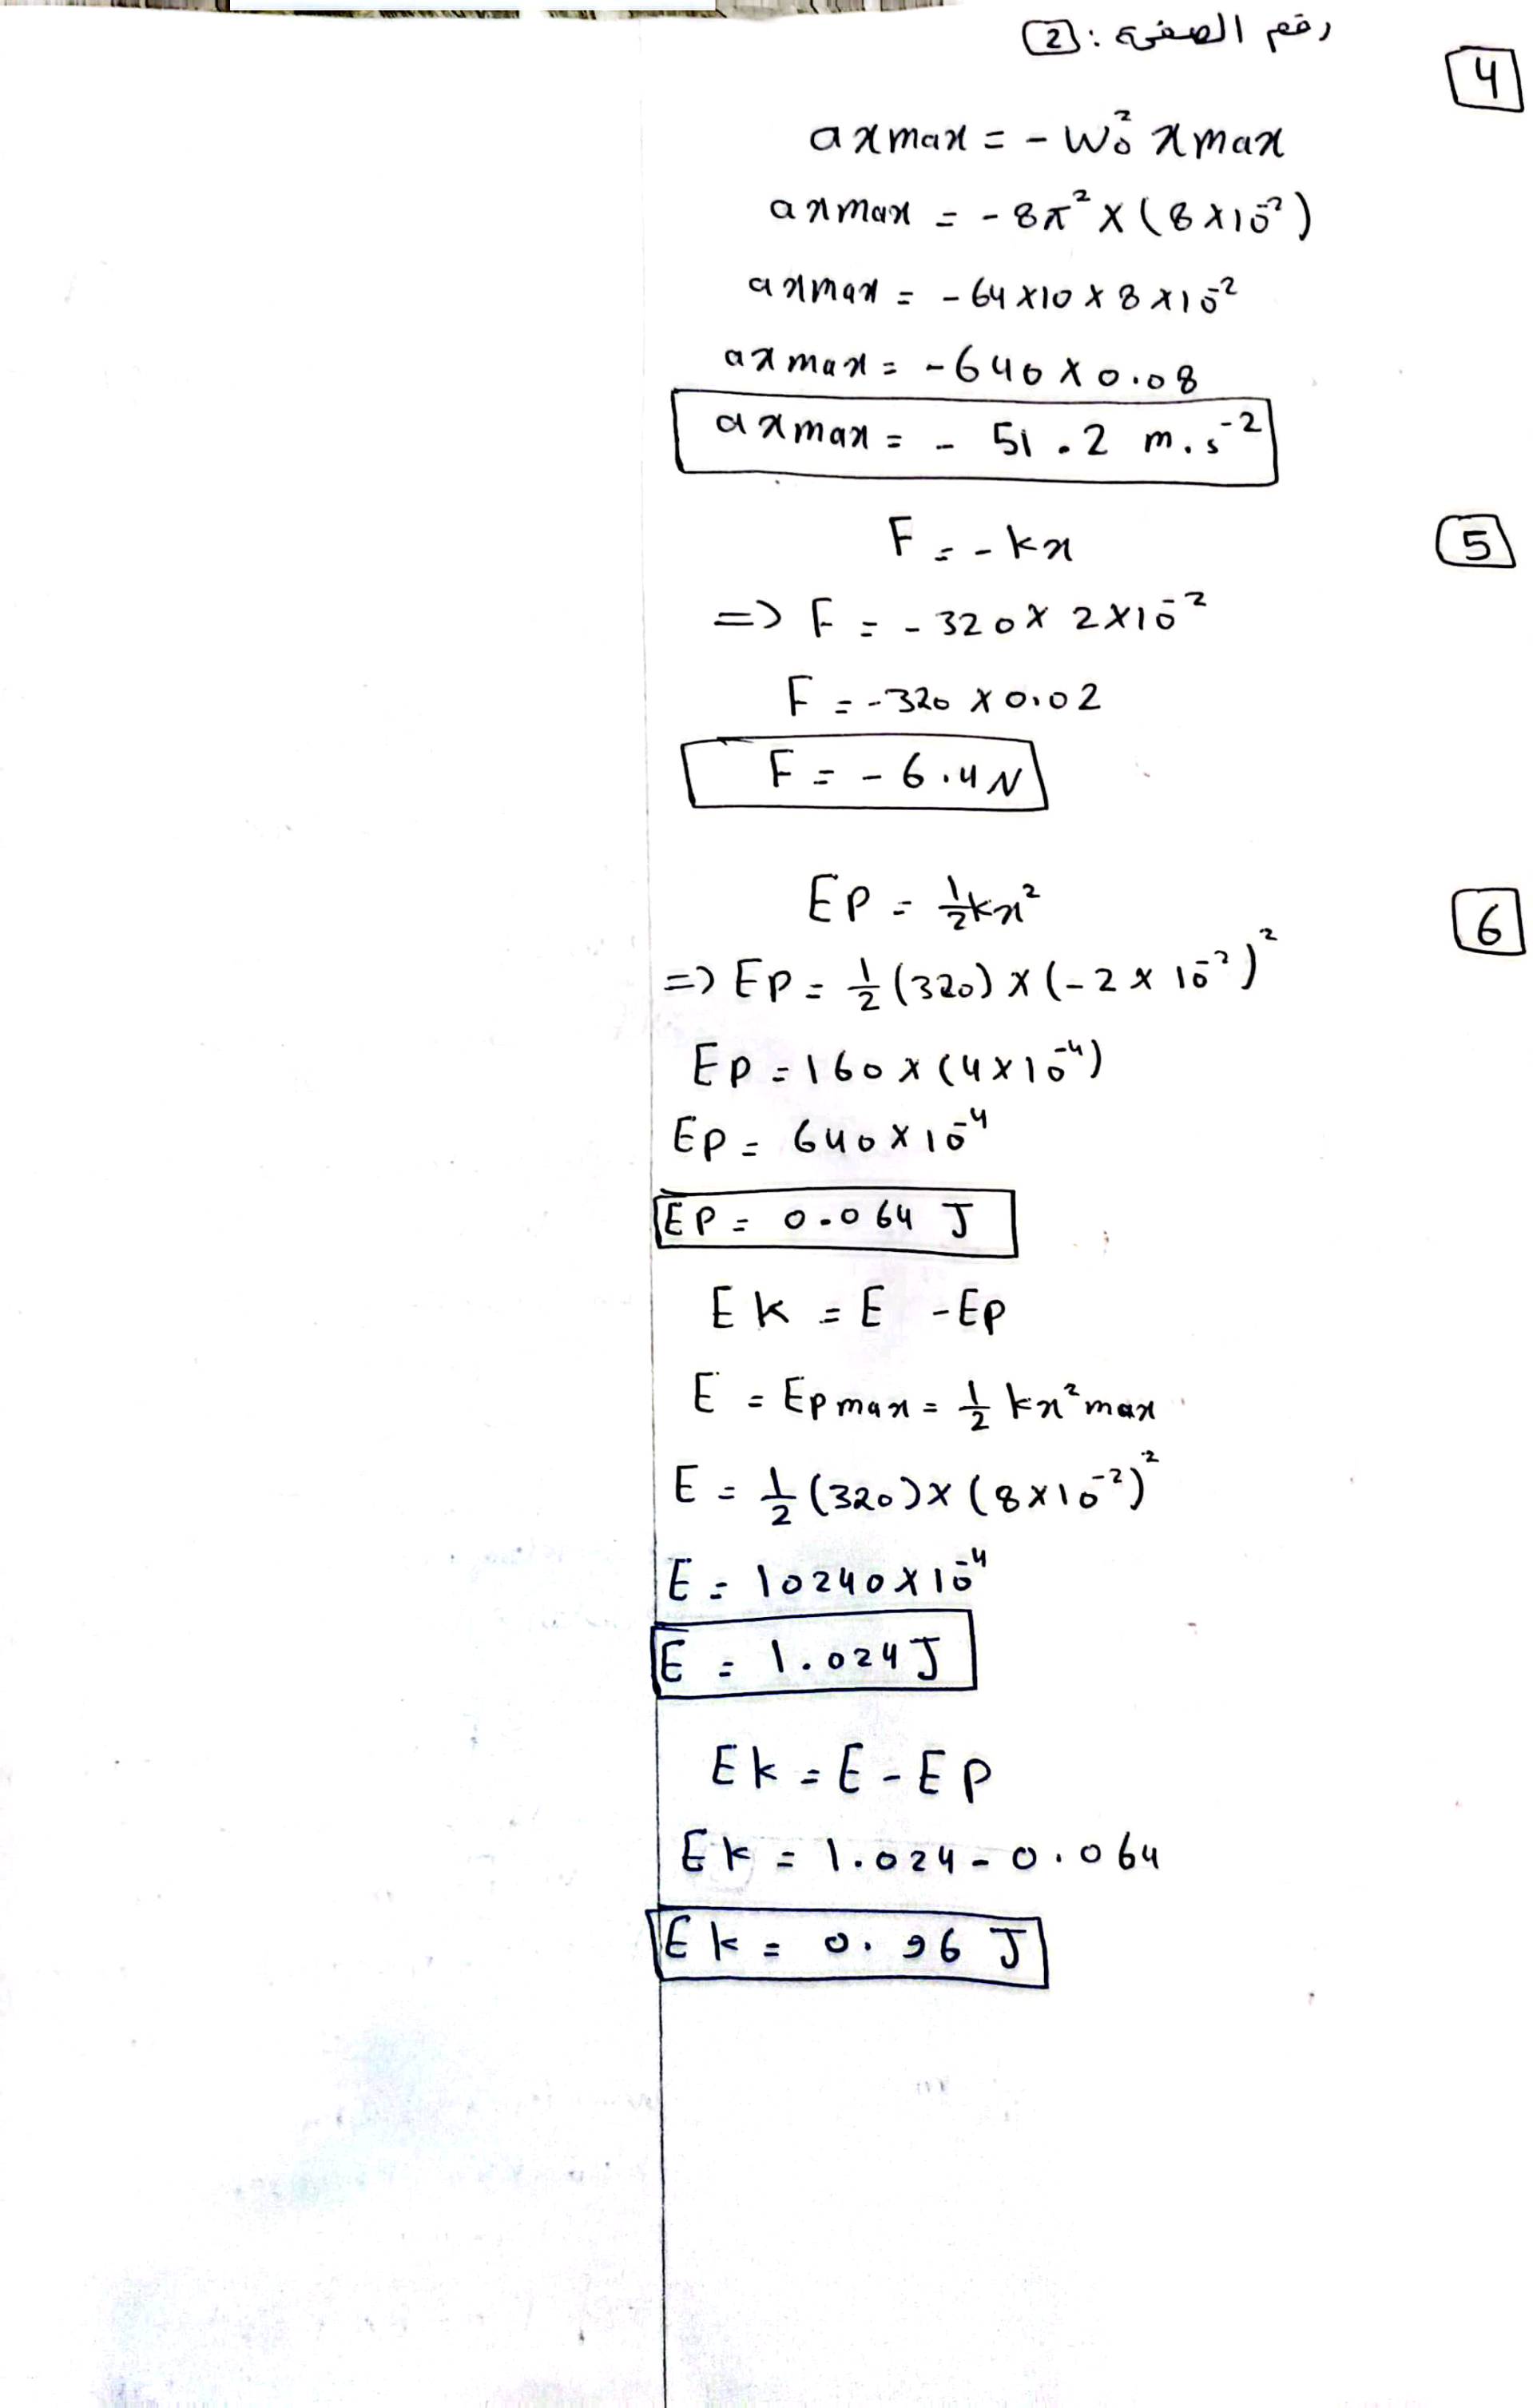 رقم الصفحة : 2
4
a x max = - W₀² x max
a x max = - 8π² × (8 × 10⁻²)
a x max = - 64 × 10 × 8 × 10⁻²
a x max = - 640 × 0.08
a x max = - 51.2 m.s⁻²
5
F = - k x
=> F = - 320 × 2 × 10⁻²
F = - 320 × 0.02
F = - 6.4 N
6
EP = ½ k x²
=> EP = ½ (320) × (- 2 × 10⁻²)²
EP = 160 × (4 × 10⁻⁴)
EP = 640 × 10⁻⁴
EP = 0.064 J
Ek = E - EP
E = EP max = ½ k x² max
E = ½ (320) × (8 × 10⁻²)²
E = 10240 × 10⁻⁴
E = 1.024 J
Ek = E - EP
Ek = 1.024 - 0.064
Ek = 0.96 J